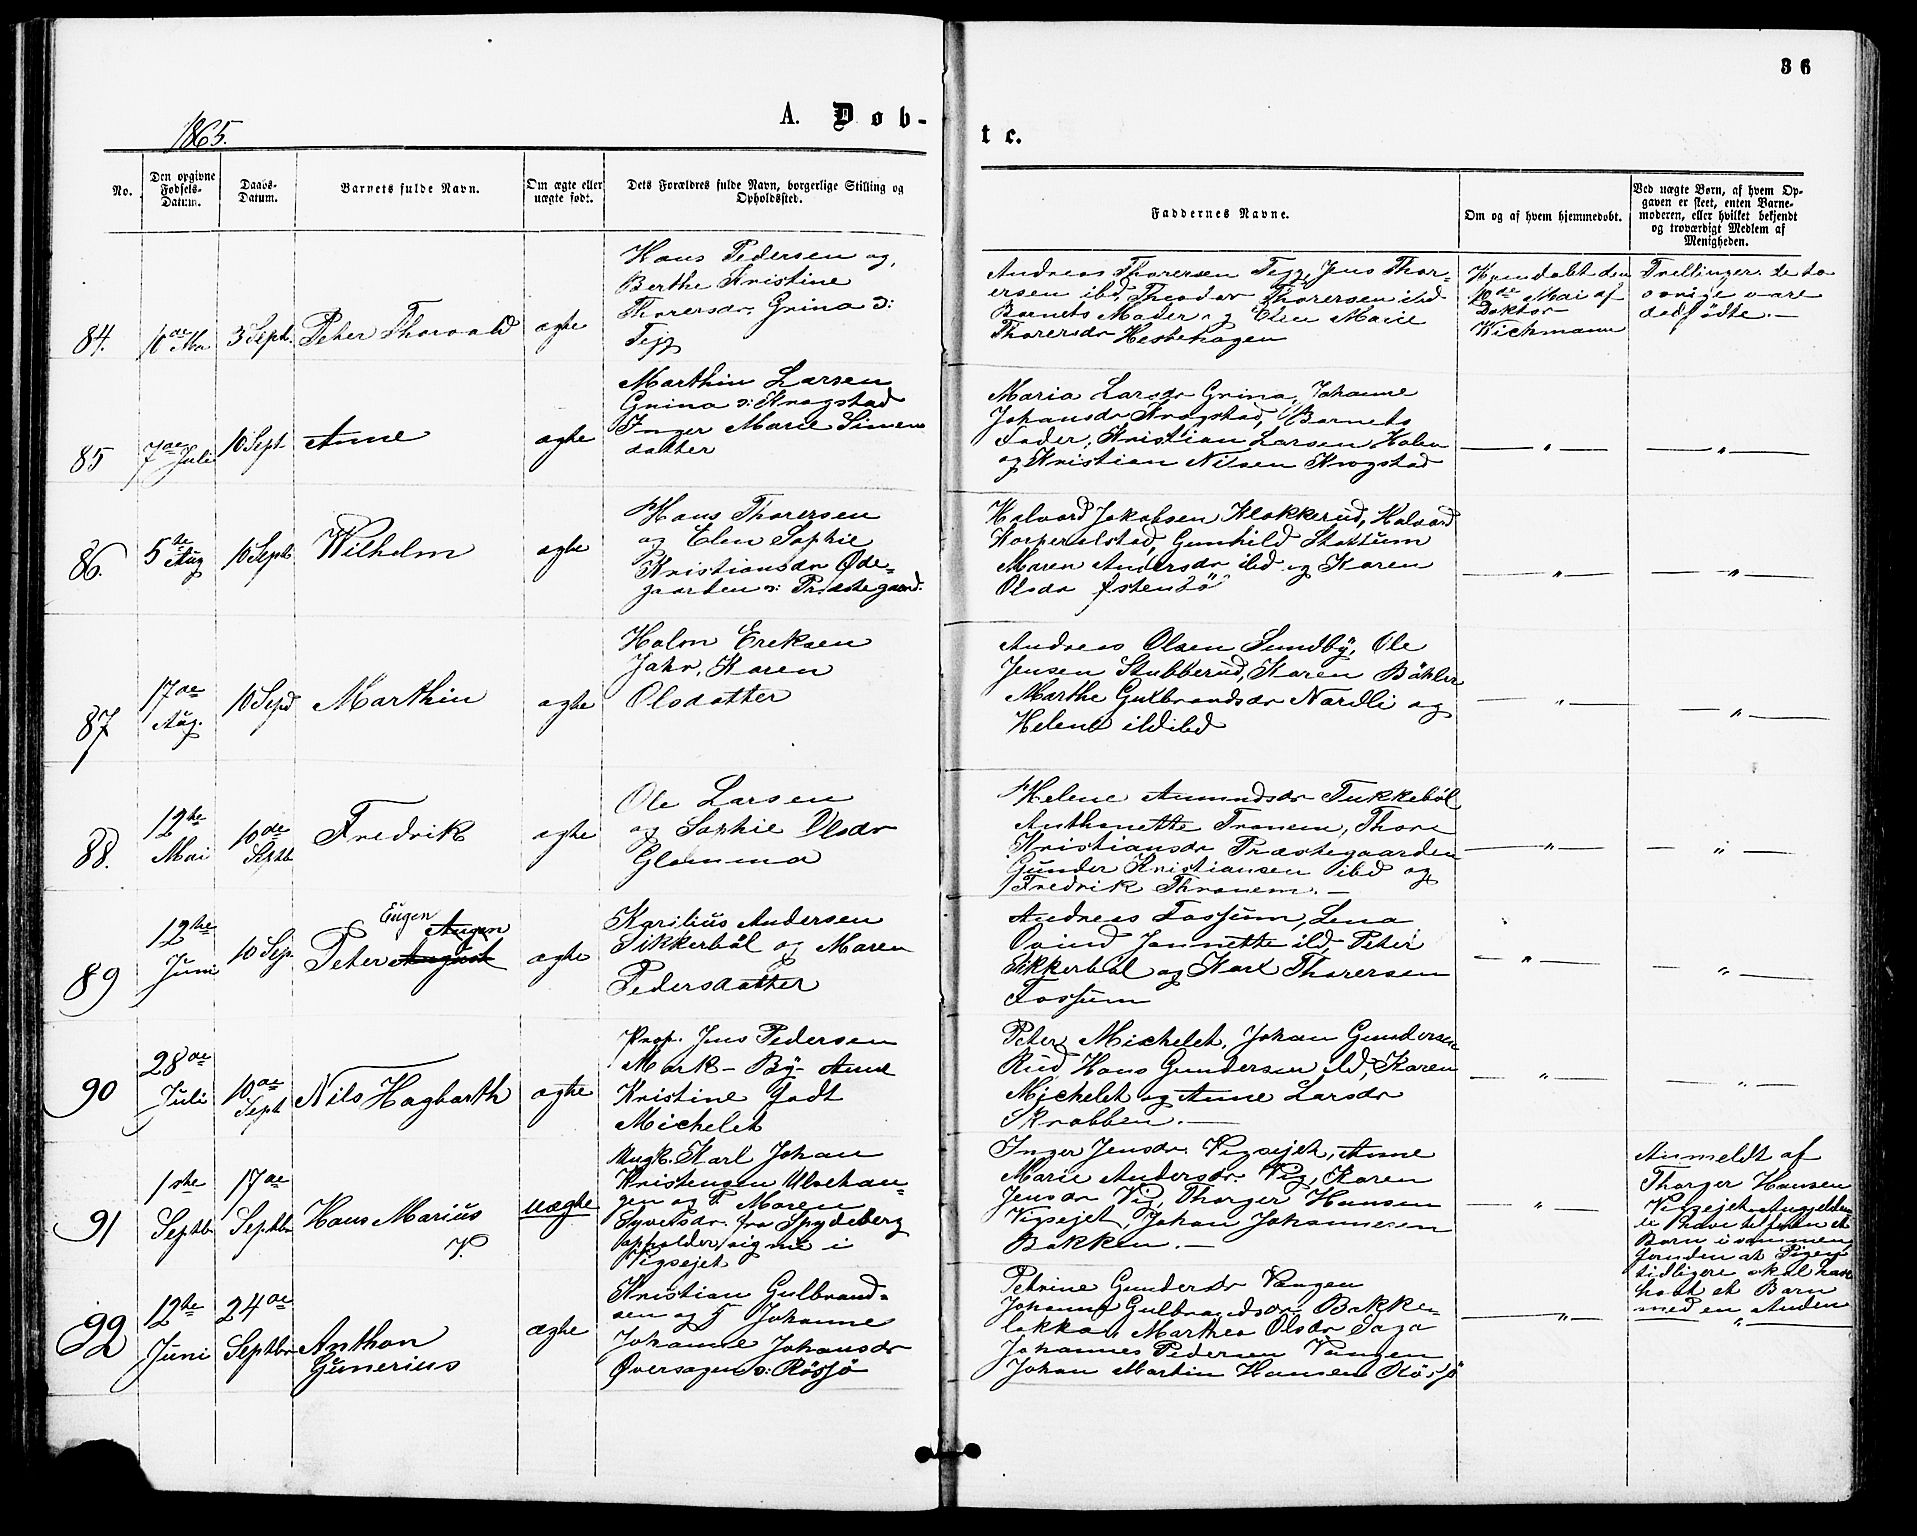 36
1865.
A. Døb-
te.
No.
Den opgivne Fødsels-Datum.
Daabs-Datum.
Barnets fulde Navn.
Om ægte eller uægte født.
Dets Forældres fulde Navn, borgerlige Stilling og Opholdssted.
Faddernes Navne.
Om og af hvem hjemmedøbt.
Ved uægte Børn, af hvem Opgaven er skeet, enten Barnemoderen, eller hvilket bekjendt og troværdigt Medlem af Menigheden.
84.
10de Mai
3 Septb.
Peter Thorvald
ægte
Hans Pedersen og
Berthe Kristine
Thorersdr. Grina s:
Andreas Thorersen Tegge, Jens Thor-
ersen ibd, Theodor Thorersen ibd
Barnets Moder og Elen Marie
Thorersdr Hestehagen
Hjemdøbt den
10de Mai af
Doktor
Wichmann
Trellinger. de to
øvrige vare
dødfødte. —
85
7de Juli
10 Sept
Anne
ægte
Marthin Larsen
Grina s: Krogstad
Inger Marie Simens
datter
Maria Larsdr Grina, Johanne
Johansdr Krogstad, Barnets
Fader, Kristian Larsen Holm
og Kristian Nilsen Krogstad
— " —
— " —
86.
5te Aug
10 Septb
Wilhelm
ægte
Hans Thorersen
og Elen Sophie
Kristiansdr Øde-
gaarden s: Præstegaard.
Halvord Jakobsen Klokkerud, Halvord
Korperulstad, Gunhild Stattum
Maren Andersdr ibd og Karen
Olsdr Østensö
— " —
— " —
87
17de
Aug.
10 Sept
Marthin
ægte
Holm Eriksen
Jahr, Karen
Olsdatter
Andreas Olsen Sundby, Ole
Jensen Stubberud, Karen Böhler
Marthe Gulbrandsdr Nordli og
Helene ibd
— " —
— " —
88.
12te
Mai
10de
Septb
Fredrik
ægte
Ole Larsen
og Sophie Olsdr
Glomma
Helene Amundsdr Tukkeböl
Anthonette Tronsen, Thore
Kristiansdr Præstegaarden
Gunder Kristiansen ibd og
Fredrik Thronsen. —
— " —
— " —
89
12te
Juni
10 Sep.
Eugen
Augen
Peter August
ægte
Karilius Andersen
Sikkerböl og Maren
Pedersdatter
Andreas Fossum, Lena
Ovind Jannette ibd, Peter
Sikkerböl og Karl Thorersen
Fossum
— " —
— " —
90
28de
Juli
10de
Sept
Nils Hagbarth
ægte
Prop. Jens Pedersen
Mork – By – Anne
Kristine født
Michelet
Peter Michelet, Johan Gundersen
Rud, Hans Gundersen ibd, Karen
Michelet og Anne Larsdr
Skrabben. —
— " —
— " —
91
1ste
Septbr
17de
Septbr
Hans Marius
V.
uægte
Ungk. Karl Johan
Kristensen Ulvehau-
gen og P. Maren
Syversdr. fra Spydeberg
opholder sig nu i
Vigsejet
Inger Jensdr. Vigsejet, Anne
Marie Andersdr. Vig, Karen
Jensdr Vig, Thorger Hansen
Vigsejet, Johan Johannesen
Bakken. —
— " —
Anmeldt af
Thorger Hansen
Vigsejet. Angjeldende
have et Barn i sammen
foruden at Pigen
tidligere skal have
havt et Barn
med en Anden
92
12te
Juni
24de
Septbr
Anthon
Gunerius
ægte
Kristian Gulbrand-
sen og Johanne
Johanne Johansdr
Øversagen s: Røssjø
Petrine Gundersdr Vangen
Johanne Gulbrandsdr Bakke-
løkka, Marthea Olsdr Saga
Johannes Pedersen Vangen
Johan Martin Hansen Røssjø
— " —
— " —